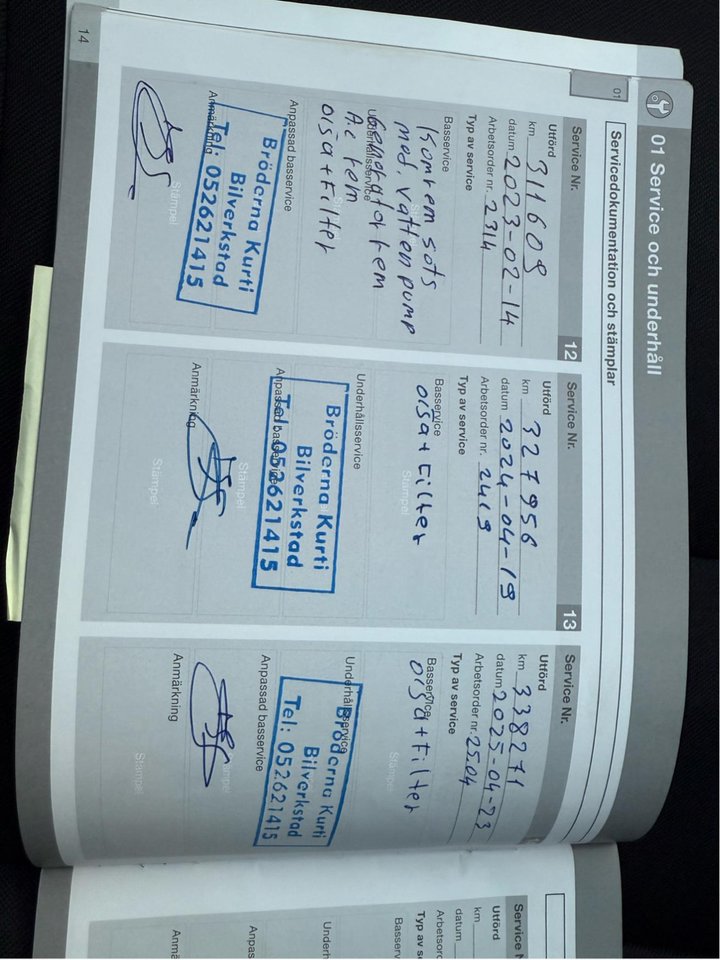 01 Service och underhåll
Servicedokumentation och stämplar
01
Service Nr.
12
Utförd
km 311609
datum 2023-02-14
Arbetsorder nr. 2314
Typ av service
Basservice
Kamrem sats
med. vatten pump
Underhållsservice
Generator rem
AC rem
olja + Filter
Anpassad basservice
Bröderna Kurti
Bilverkstad
Tel: 052621415
Anmärkning
Stämpel
Service Nr.
13
Utförd
km 327956
datum 2024-04-19
Arbetsorder nr. 2419
Typ av service
Basservice
olja + Filter
Stämpel
Underhållsservice
Bröderna Kurti
Bilverkstad
Tel: 052621415
Anpassad basservice
Stämpel
Anmärkning
Stämpel
Service Nr.
Utförd
km 338271
datum 2025-04-23
Arbetsorder nr. 2504
Typ av service
Basservice
olja + Filter
Underhållsservice
Bröderna Kurti
Bilverkstad
Tel: 052621415
Anpassad basservice
Stämpel
Anmärkning
Stämpel
14
Service N
Utförd
km
datum
Arbetsorc
Typ av se
Basservice
Underh
Anpas
Anmä